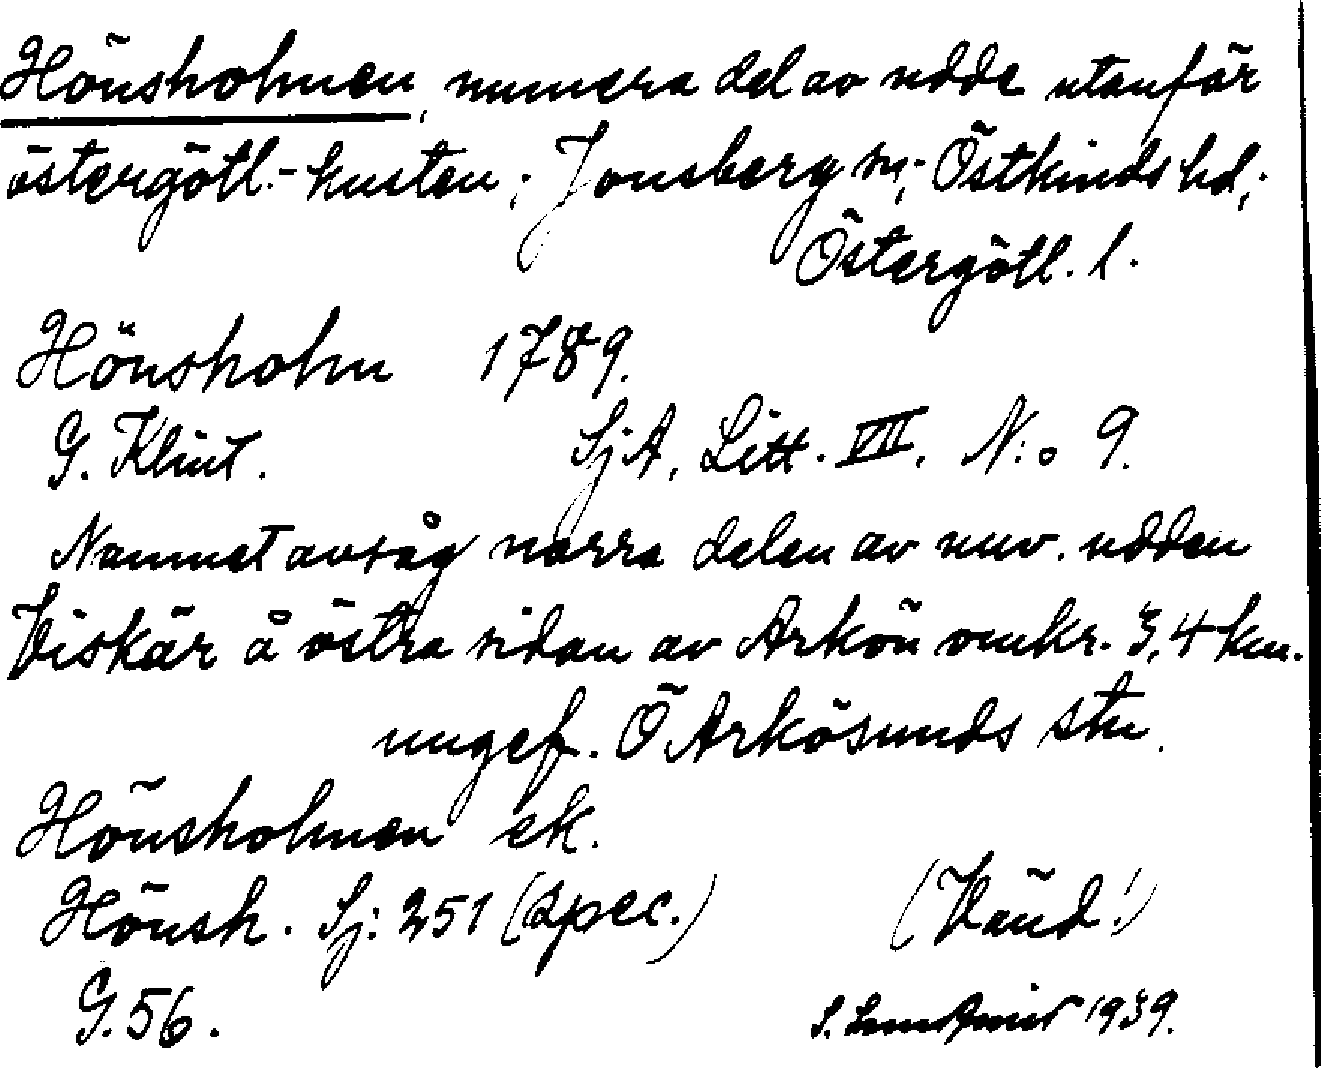 Hönsholmen, numera del av udde utanför
östergötl.-kusten; Jonsberg sn; Östkinds hd;
Östergötl. l.
Hönsholm 1789.
G. Klint. SjA, Litt. VII. N:o 9.
Namnet avsåg norra delen av nuv. udden
Viskär å östra sidan av Arkön omkr. 3,4 km.
ungef. Ö Arkösunds stn.
Hönsholmen ek.
Hönsh. Sj: 251 (spec.) (Vänd!)
G. 56. S. 1939.